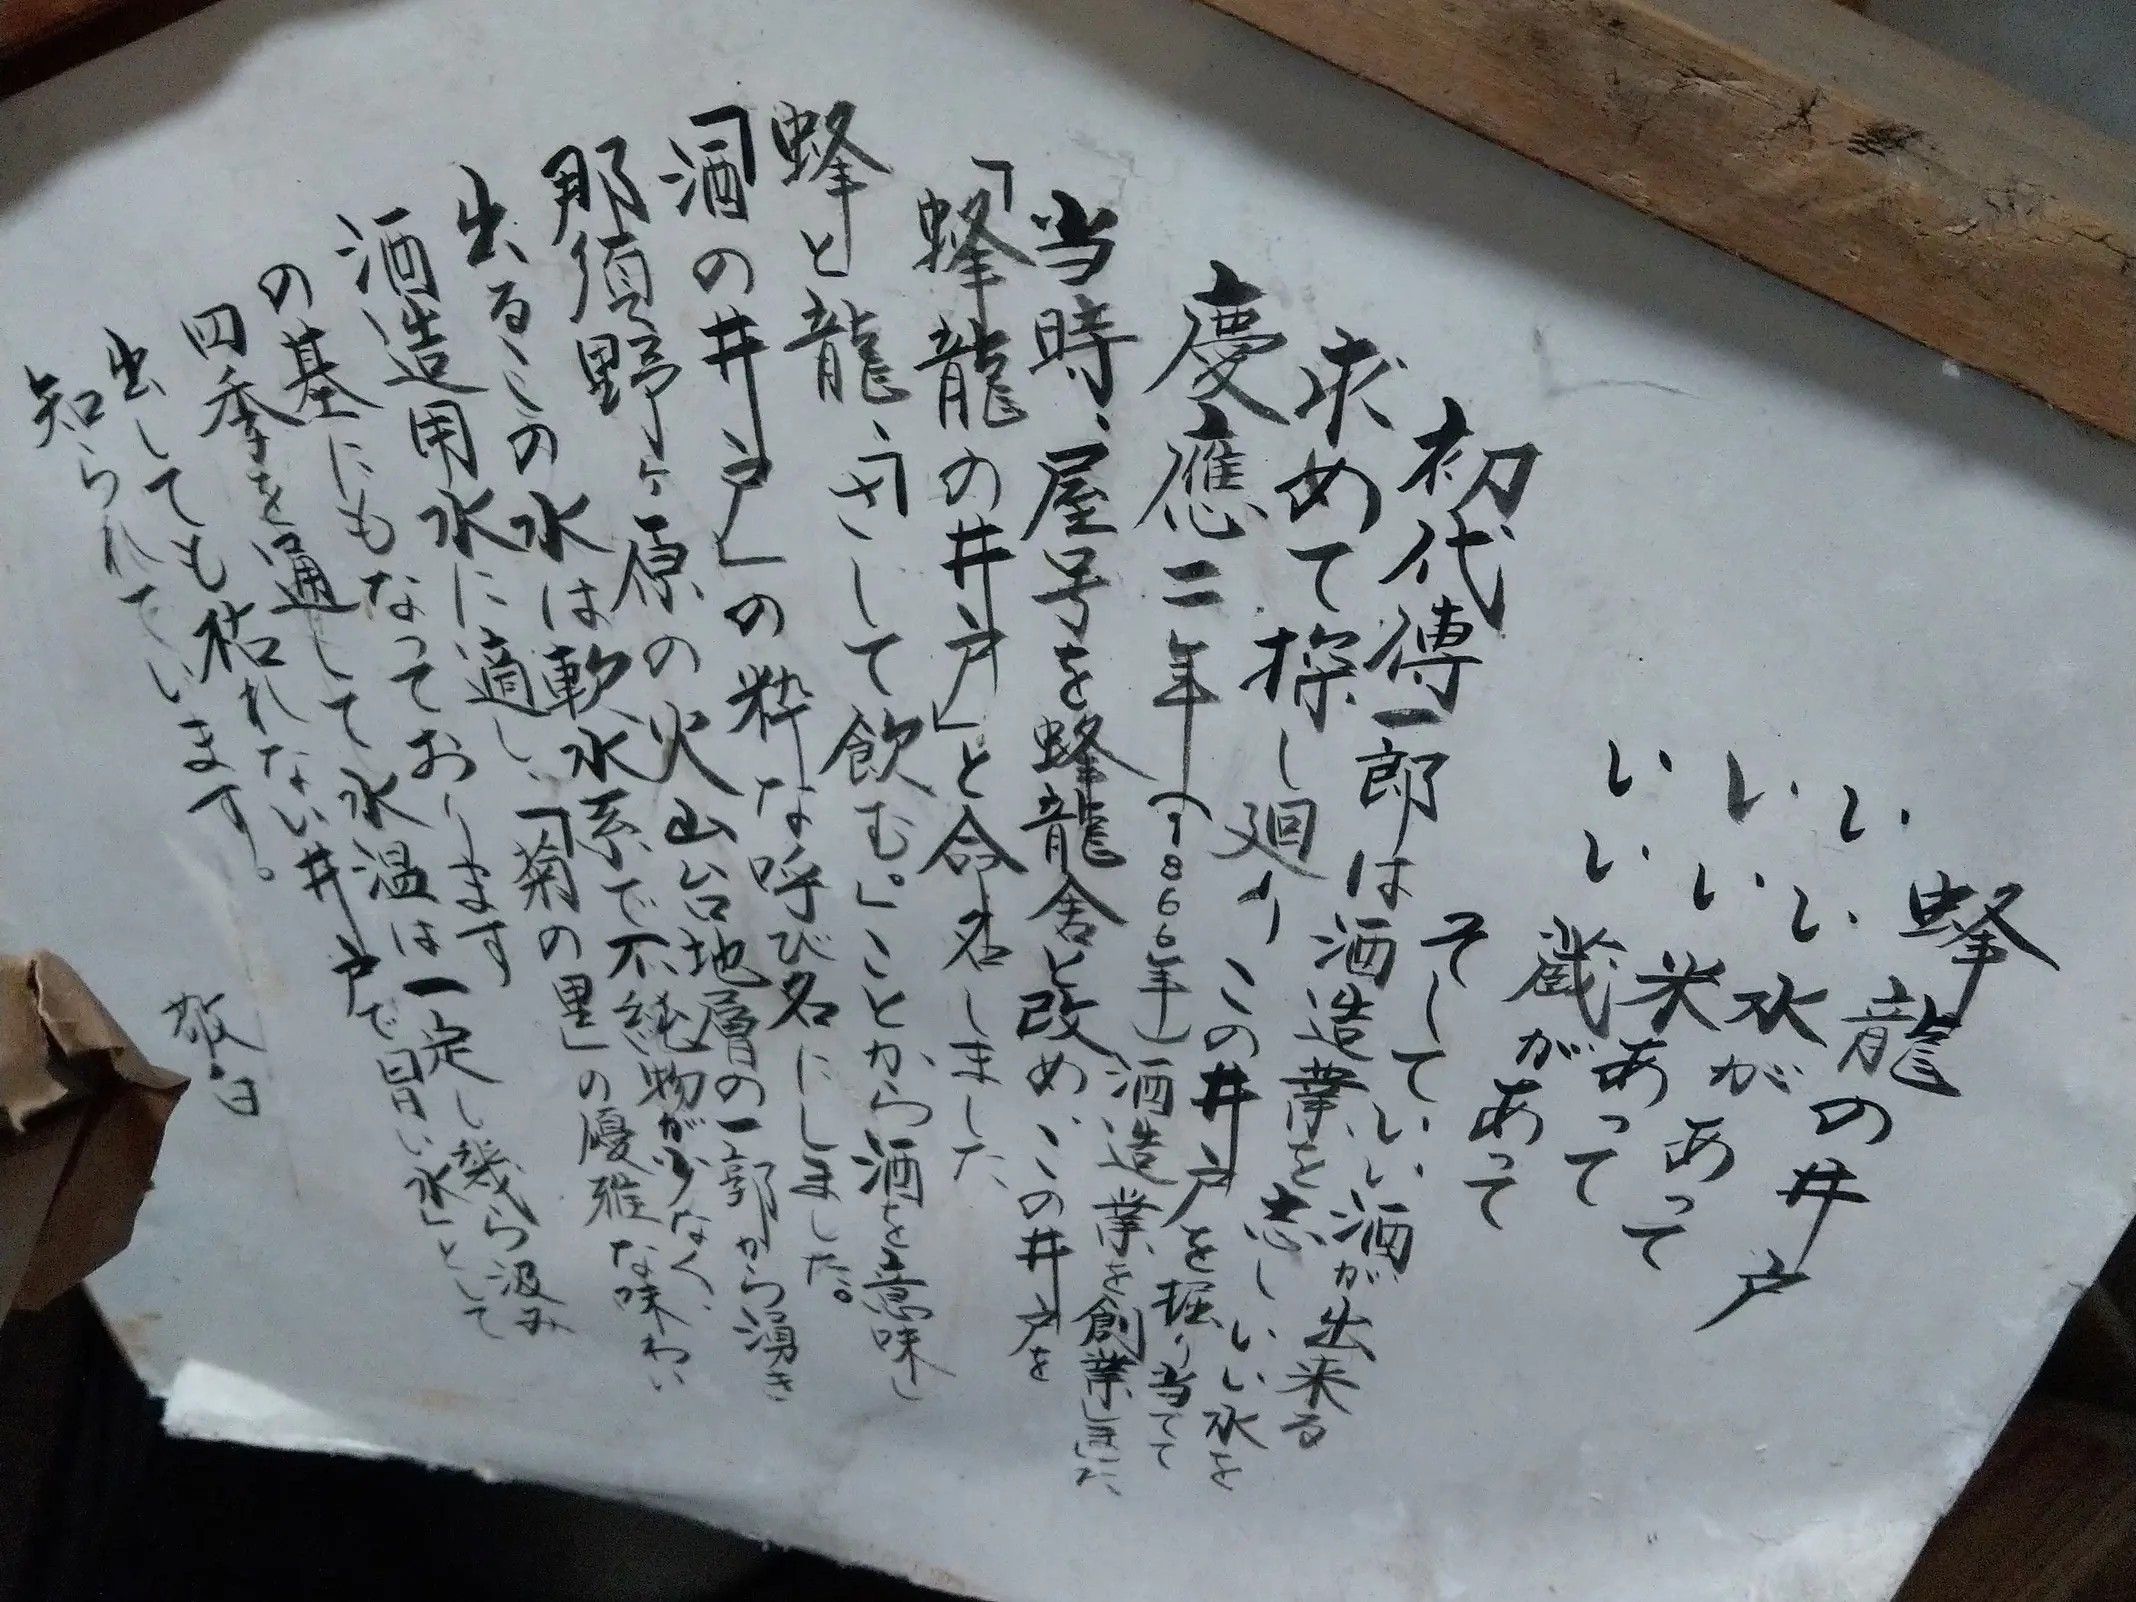 蜂龍の井戸
いい水があって
いい米あって
いい蔵があって
そしていい酒が出来る
初代傳一郎は酒造業を志しいい水を
求めて探し廻りこの井戸を掘り当てて
慶應二年（1866年）酒造業を創業しました
当時、屋号を蜂龍舎と改め、この井戸を
「蜂龍の井戸」と命名しました
蜂と龍、「さして飲む。」ことから酒を意味し
「酒の井戸」の粋な呼び名にしました。
那須野ヶ原の火山台地層の一郭から湧き
出るこの水は軟水系で不純物が少なく、
酒造用水に適し、「菊の里」の優雅な味わい
の基にもなっております
四季を通して水温は一定し幾ら汲み
出しても枯れない井戸で旨い水」として
知られています。
敬白